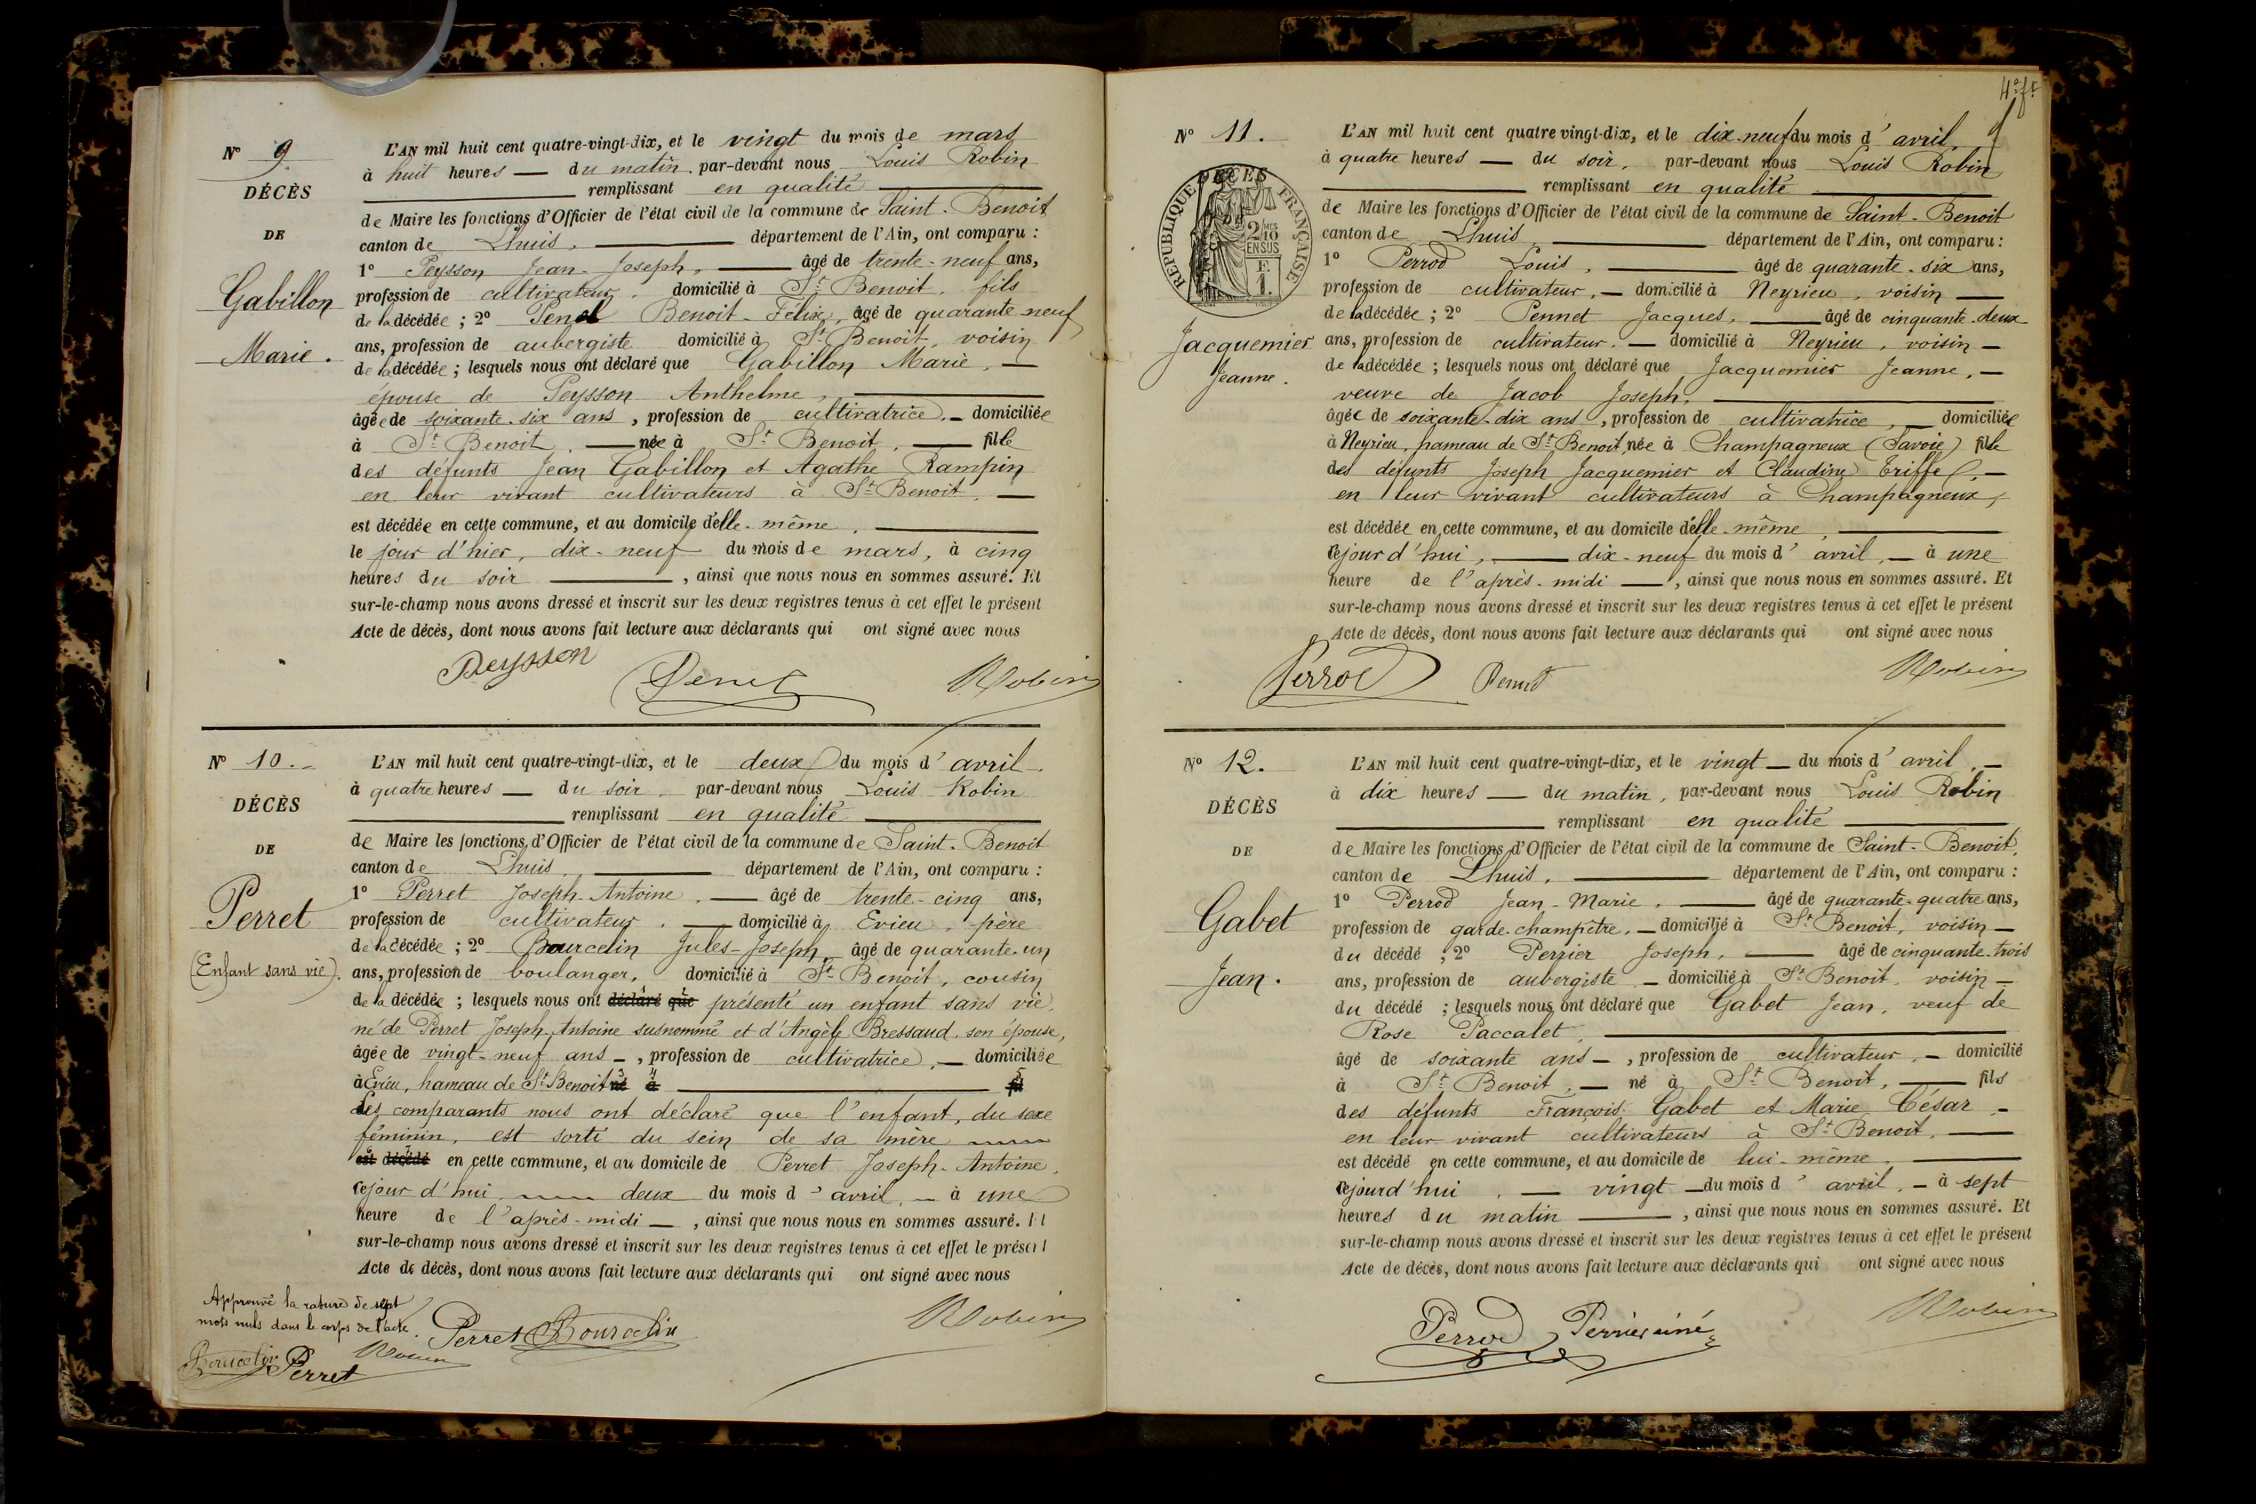 N° 9.
DÉCÈS
DE
Gabillon
Marie.
L'AN mil huit cent quatre-vingt-dix, et le vingt du mois de mars
à huit heures — du matin. par-devant nous Louis Robin
remplissant en qualité
de Maire les fonctions d'Officier de l'état civil de la commune de Saint-Benoit
canton de Lhuis, département de l'Ain, ont comparu :
1° Peysson Jean-Joseph, âgé de trente-neuf ans,
profession de cultivateur, domicilié à St Benoit, fils
de la décédée ; 2° Benoit-Félix, âgé de quarante-neuf
ans, profession de aubergiste domicilié à St Benoit, voisin
de la décédée ; lesquels nous ont déclaré que Gabillon Marie, —
épouse de Peysson Anthelme,
âgée de soixante-six ans, profession de cultivatrice. — domiciliée
à St Benoit, née à St Benoit, fille
des défunts Jean Gabillon et Agathe Rampin
en leur vivant cultivateurs à St Benoit. —
est décédée en cette commune, et au domicile d'elle-même,
le jour d'hier, dix-neuf du mois de mars, à cinq
heures du soir, ainsi que nous nous en sommes assuré. Et
sur-le-champ nous avons dressé et inscrit sur les deux registres tenus à cet effet le présent
Acte de décès, dont nous avons fait lecture aux déclarants qui ont signé avec nous
Peysson Penet Robin
N° 10.
DÉCÈS
DE
Perret
(Enfant sans vie).
L'AN mil huit cent quatre-vingt-dix, et le deux du mois d'avril.
à quatre heures — du soir. par-devant nous Louis Robin
remplissant en qualité
de Maire les fonctions d'Officier de l'état civil de la commune de Saint-Benoit
canton de Lhuis, département de l'Ain, ont comparu :
1° Perret Joseph-Antoine, — âgé de trente-cinq ans,
profession de cultivateur, — domicilié à Evieu, père
de la décédée ; 2° Bourcelin Jules-Joseph, âgé de quarante-un
ans, profession de boulanger, domicilié à St Benoit, cousin
de la décédée ; lesquels nous ont déclaré que présenté un enfant sans vie,
né de Perret Joseph-Antoine susnommé et d'Angèle Bressaud, son épouse,
âgée de vingt-neuf ans —, profession de cultivatrice, — domiciliée
à Evieu, hameau de St Benoit né à fil
Les comparants nous ont déclaré que l'enfant, du sexe
féminin, est sorti du sein de sa mère
est décédé en cette commune, et au domicile de Perret Joseph-Antoine,
cejourd'hui, deux du mois d'avril, — à une
heure de l'après-midi —, ainsi que nous nous en sommes assuré. Et
sur-le-champ nous avons dressé et inscrit sur les deux registres tenus à cet effet le présent
Acte de décès, dont nous avons fait lecture aux déclarants qui ont signé avec nous
Approuvé la rature de sept
mots nuls dans le corps de l'acte.
Perret Bourcelin Robin
Bourcelin Perret Robin
4e ft
N° 11.
DÉCÈS
RÉPUBLIQUE FRANÇAISE
2/10 EN SUS
F. 1.
Jacquemier
Jeanne.
L'AN mil huit cent quatre vingt-dix, et le dix-neuf du mois d'avril,
à quatre heures — du soir. par-devant nous Louis Robin
remplissant en qualité
de Maire les fonctions d'Officier de l'état civil de la commune de Saint-Benoit
canton de Lhuis département de l'Ain, ont comparu :
1° Perrod Louis, âgé de quarante-six ans,
profession de cultivateur, — domicilié à Neyrieu, voisin —
de la décédée ; 2° Pennet Jacques, âgé de cinquante-deux
ans, profession de cultivateur. — domicilié à Neyrieu, voisin —
de la décédée ; lesquels nous ont déclaré que Jacquemier Jeanne, —
veuve de Jacob Joseph,
âgée de soixante-dix ans, profession de cultivatrice, — domiciliée
à Neyrieu, hameau de St Benoit, née à Champagneux (Savoie) fille
des défunts Joseph Jacquemier et Claudine Triffe, —
en leur vivant cultivateurs à Champagneux,
est décédée en cette commune, et au domicile d'elle-même,
cejourd'hui, — dix-neuf du mois d'avril, — à une
heure de l'après-midi —, ainsi que nous nous en sommes assuré. Et
sur-le-champ nous avons dressé et inscrit sur les deux registres tenus à cet effet le présent
Acte de décès, dont nous avons fait lecture aux déclarants qui ont signé avec nous
Perrod Robin
N° 12.
DÉCÈS
DE
Gabet
Jean.
L'AN mil huit cent quatre-vingt-dix, et le vingt — du mois d'avril, —
à dix heures — du matin, par-devant nous Louis Robin
remplissant en qualité
de Maire les fonctions d'Officier de l'état civil de la commune de Saint-Benoit,
canton de Lhuis, département de l'Ain, ont comparu :
1° Perrod Jean-Marie, âgé de quarante-quatre ans,
profession de garde-champêtre, — domicilié à St Benoit, voisin —
du décédé ; 2° Perrier Joseph, âgé de cinquante-trois
ans, profession de aubergiste — domicilié à St Benoit, voisin —
du décédé ; lesquels nous ont déclaré que Gabet Jean, veuf de
Rose Paccalet,
âgé de soixante ans —, profession de cultivateur, — domicilié
à St Benoit, — né à St Benoit, fils
des défunts François Gabet et Marie César, —
en leur vivant cultivateurs à St Benoit,
est décédé en cette commune, et au domicile de lui-même,
cejourd'hui, — vingt — du mois d'avril, — à sept
heures du matin, ainsi que nous nous en sommes assuré. Et
sur-le-champ nous avons dressé et inscrit sur les deux registres tenus à cet effet le présent
Acte de décès, dont nous avons fait lecture aux déclarants qui ont signé avec nous
Perrod Perrier ainé Robin